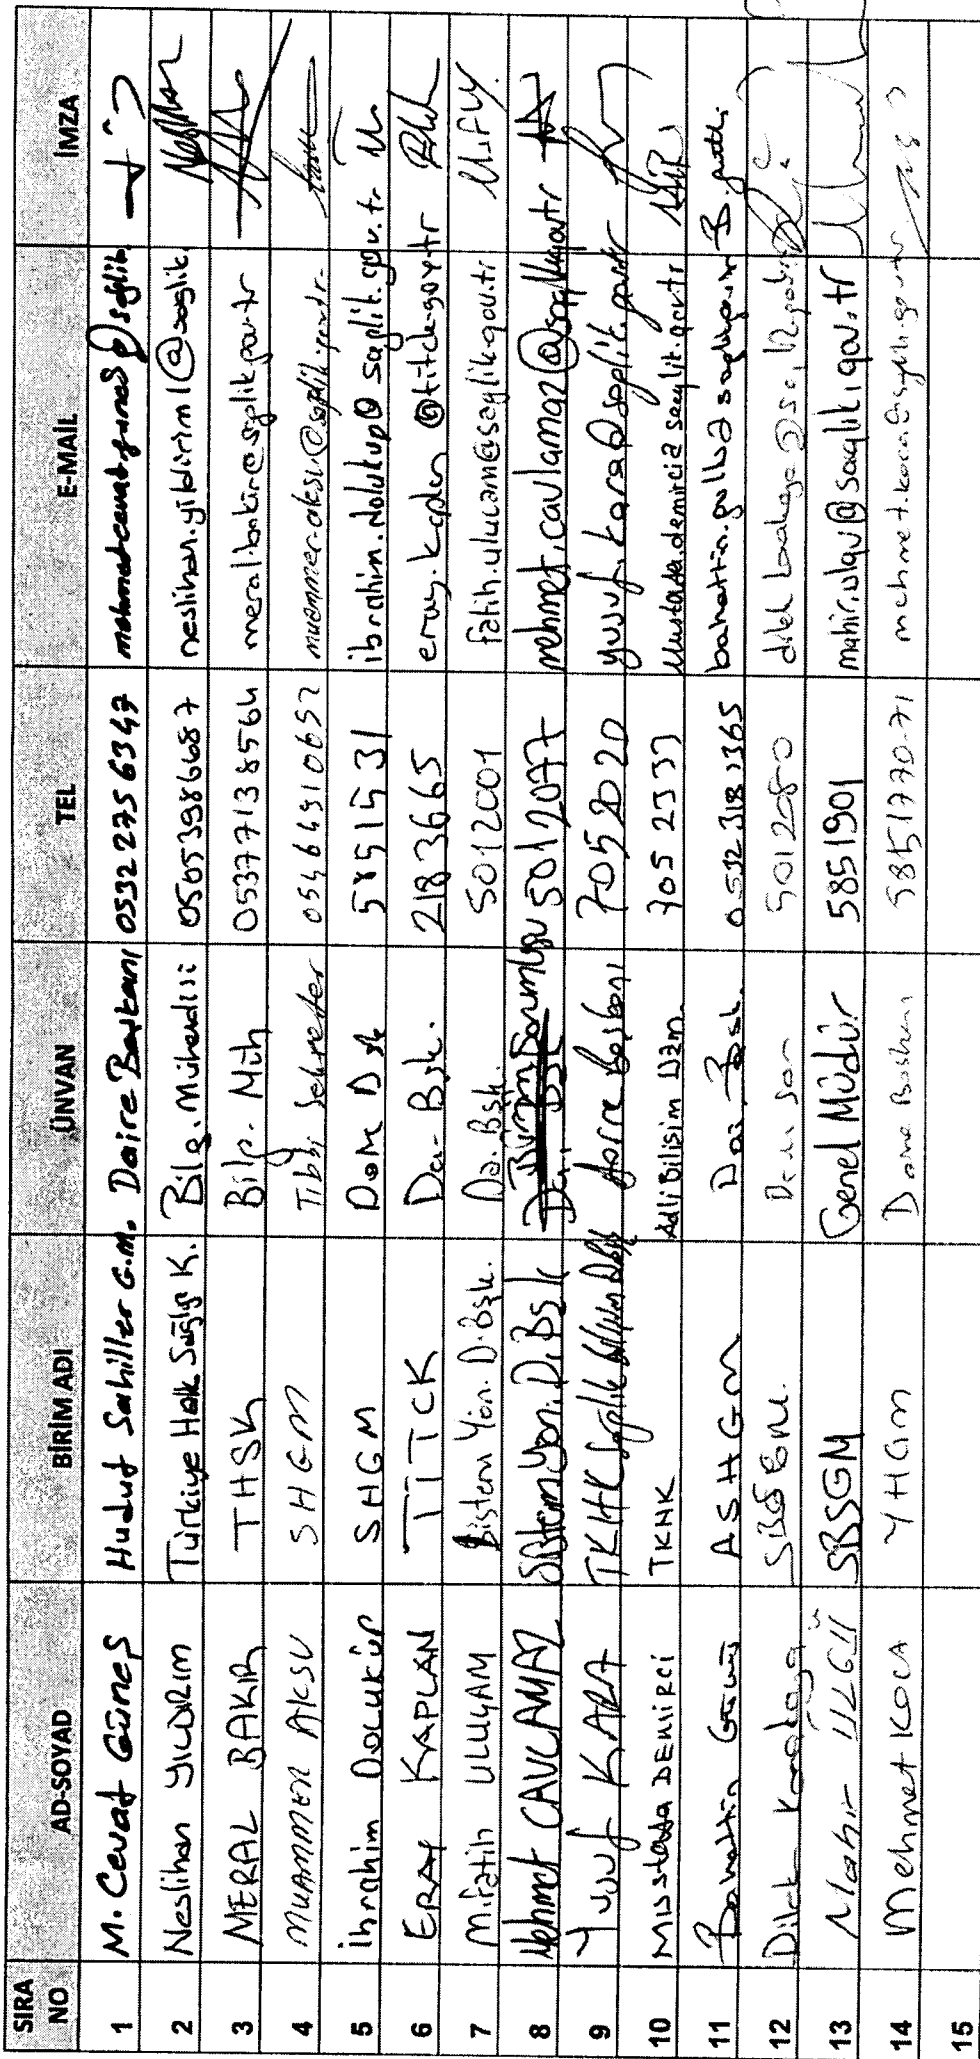 SIRA NO AD-SOYAD BİRİM ADI ÜNVAN TEL E-MAİL İMZA
1 M. Cevat Güneş Hudut Sahiller G.M. Daire Başkanı 0532 275 6347 mehmetcevat.gunes@saglik.
2 Neslihan YILDIRIM Türkiye Halk Sağlığı K. Bilg. Mühendisi 05053986687 neslihan.yildirim1@saglik.
3 MERAL BAKIR THSK Bilg. Müh 05377138564 meral.bakir@saglik.gov.tr
4 MUAMMER AKSU SHGM Tıbbi Sekreter 05464310652 muammer.aksu@saglik.gov.tr.
5 İbrahim DOLUKÜP SHGM 5851531 ibrahim.dolukup@saglik.gov.tr
6 ERAY KAPLAN TİTCK Da. Bşk. 2183665 eray.kaplan@titck.gov.tr
7 M.Fatih ULUÇAM Sistem Yön. D.Bşk. Da. Bşk. 5012001 fatih.ulucam@saglik.gov.tr
8 Mehmet CAVLAMAZ Sistem Yön. D.Bşk 5012077 mehmet.cavlamaz@saglik.gov.tr
9 Yusuf KARA TKHK Sağlık Daire Başkanı 7052020 yusuf.kara@saglik.gov.tr
10 Mustafa DEMİRCİ TKHK Adli Bilişim Uzm. 705 2333 mustafa.demirci@saglik.gov.tr
11 Bahattin ASHGM Dai. Bşk. 0532 318 3365
12 Dilek SBSGM. 5012080
13 Mahir ÜLGÜ SBSGM Genel Müdür 5851901 mahir.ulgu@saglik.gov.tr
14 Mehmet KOCA YHGM Daire Başkanı 5851770-71 mehmet.koca@saglik.gov.tr
15